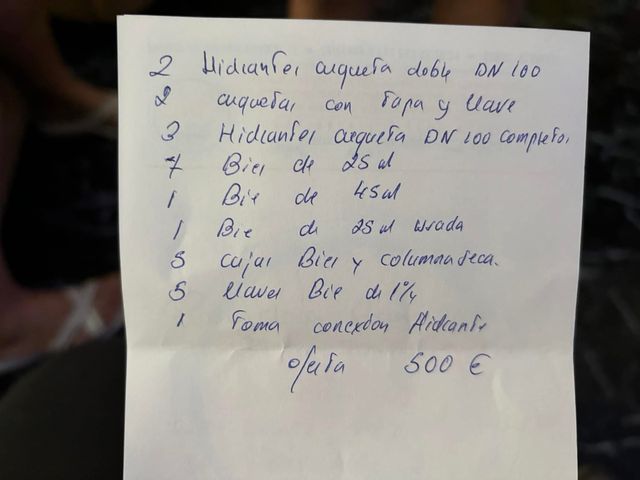 2 Hidrantes arqueta doble DN 100
2 arquetas con Tapa y llave
3 Hidrantes arqueta DN 100 completos
7 Bies de 25 ml
1 Bie de 45 ml
1 Bie de 25 ml usada
5 cajas Bies y columna seca.
5 llaves Bie de 1½
1 Toma conexion Hidrante
oferta 500 €